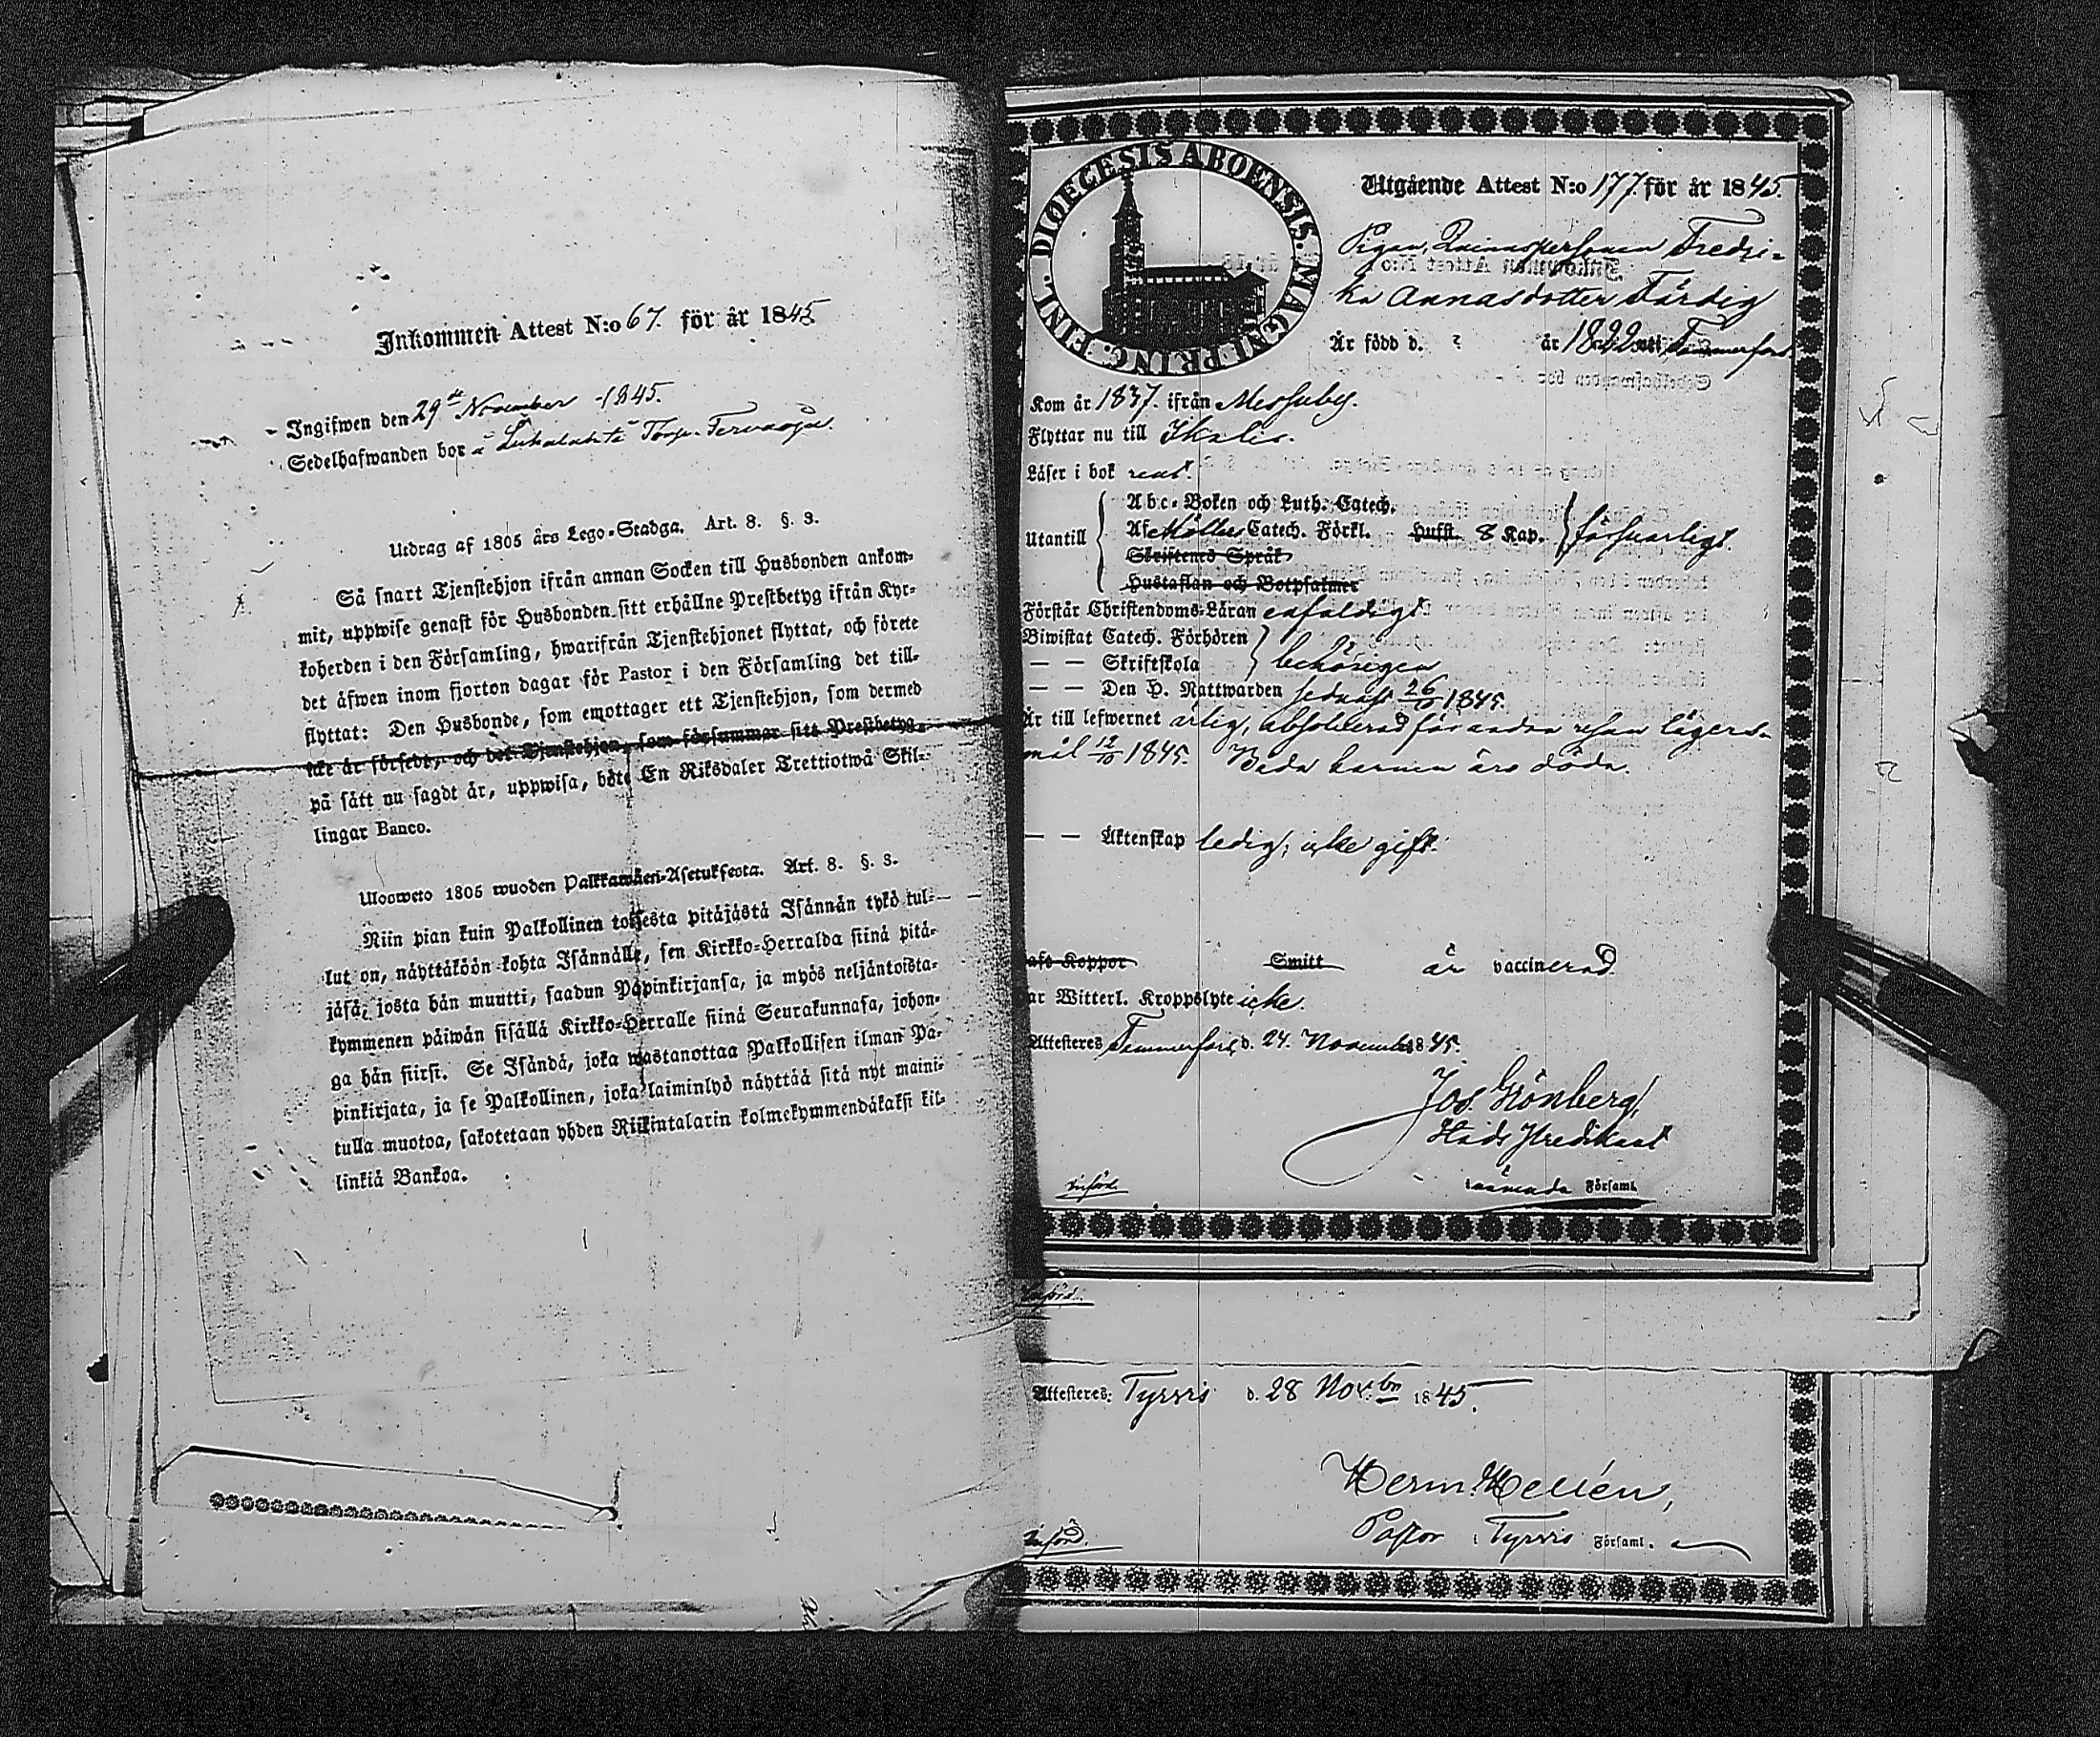 Inkommen Attest N:o 67. för år 1845.
Ingifwen den 29de November 1845.
Sedelhafwanden bor å Torp.
Utdrag af 1805 års Lego-Stadga. Art. 8. §. 3.
Så snart Tjenstehjon ifrån annan Socken till Husbonden ankom-
mit, uppwise genast för Husbonden sitt erhållne Prestbetyg ifrån Kyr-
koherden i den Församling, hwarifrån Tjenstehjonet flyttat, och förete
det äfwen inom fjorton dagar för Pastor i den Församling det till-
flyttat: Den Husbonde, som emottager ett Tjenstehjon, som dermed
icke är försedt, och det Tjenstehjon, som försummar sitt Prestbetyg,
på sätt nu sagdt är, uppwisa, böte En Riksdaler Trettiotwå Skil-
lingar Banco.
Ulosweto 1805 wuoden Palkkawäen-Asetuksesta. Art. 8. §. 3.
Niin pian kuin Palkollinen toisesta pitäjästä Isännän tykö tul-
lut on, näyttäköön kohta Isännälle, sen Kirkko-Herralda siinä pitä-
jäsä, josta hän muutti, saadun Papinkirjansa, ja myös neljäntoista-
kymmenen päiwän sisällä Kirkko-Herralle siinä Seurakunnasa, johon-
ga hän siirsi. Se Isändä, joka wastanottaa Palkollisen ilman Pa-
pinkirjata, ja se Palkollinen, joka laiminlyö näyttää sitä nyt maini-
tulla muotoa, sakotetaan yhden Riikintalarin kolmekymmendäkaksi kil-
linkiä Bankoa.
DIOECESIS ABOENSIS. MAGNI PRINC. FINL.
Utgående Attest N:o 177. för år 1845.
Pigan, Qvinnspersonen Fredri-
ka Annasdotter Färdig
Är född d. ? år 1822 uti Tammerfors
Kom år 1837. ifrån Messuby.
Flyttar nu till Ikalis.
Läser i bok rent.
Abc-Boken och Luth. Catech.
Utantill Af Möllers Catech. Förkl. Hufst. 8 Kap. försvarligt.
Skriftenes Språk
Hustaflan och Botpsalmer
Förstår Christendoms-Läran enfaldigt
Biwistat Catech. Förhören
— — Skriftskola behörigen
— — Den H. Nattwarden sednast 26/10 1845.
Är till lefwernet ärlig, absolverad för andra resan lägers-
mål 12/10 1845. Båda barnen äro döda.
— — Äktenskap ledig; icke gift.
haft Koppor Smitt är vaccinerad
Har Witterl. Kroppslyte icke.
Attesteres Tammerfors, d. 24. November 1845.
Jos. Grönberg,
Präedikant
nämnda Församl.
införd.
Införd.
Attesteres: Tyrvis d. 28 Nov:br 1845.
Herm. Hellén,
Pastor i Tyrvis Församl.
Införd.